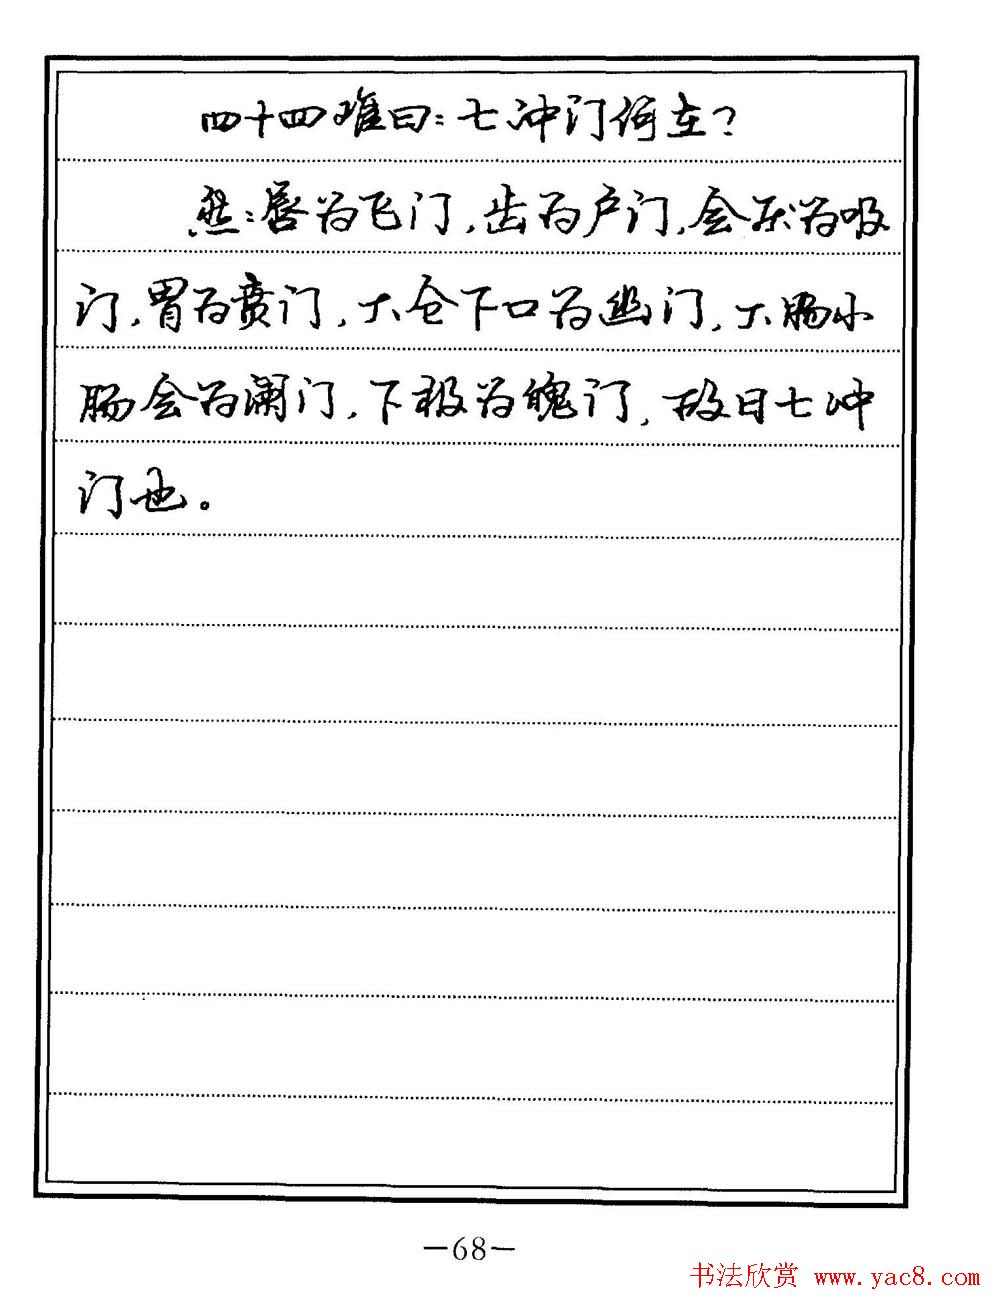 四十四难曰:七冲门何在?
然:唇为飞门,齿为户门,会厌为吸
门,胃为贲门,大仓下口为幽门,大肠小
肠会为阑门,下极为魄门,故曰七冲
门也。
—68—
书法欣赏 www.yac8.com